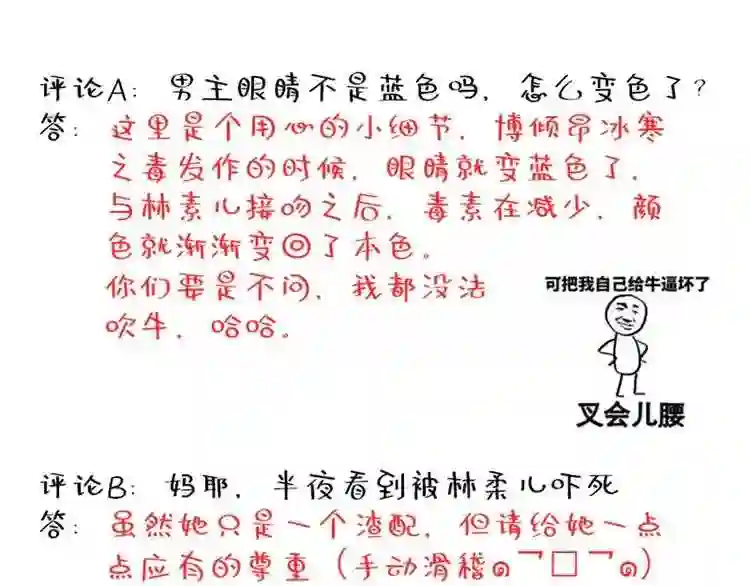 评论A: 男主眼睛不是蓝色吗, 怎么变色了?
答: 这里是个用心的小细节, 博倾昂冰寒
之毒发作的时候, 眼睛就变蓝色了,
与林素儿接吻之后, 毒素在减少, 颜
色就渐渐变回了本色。
你们要是不问, 我都没法
吹牛, 哈哈。
可把我自己给牛逼坏了
叉会儿腰
评论B: 妈耶, 半夜看到被林柔儿吓死
答: 虽然她只是一个渣配, 但请给她一点
点应有的尊重 (手动滑稽๑乛□乛๑)